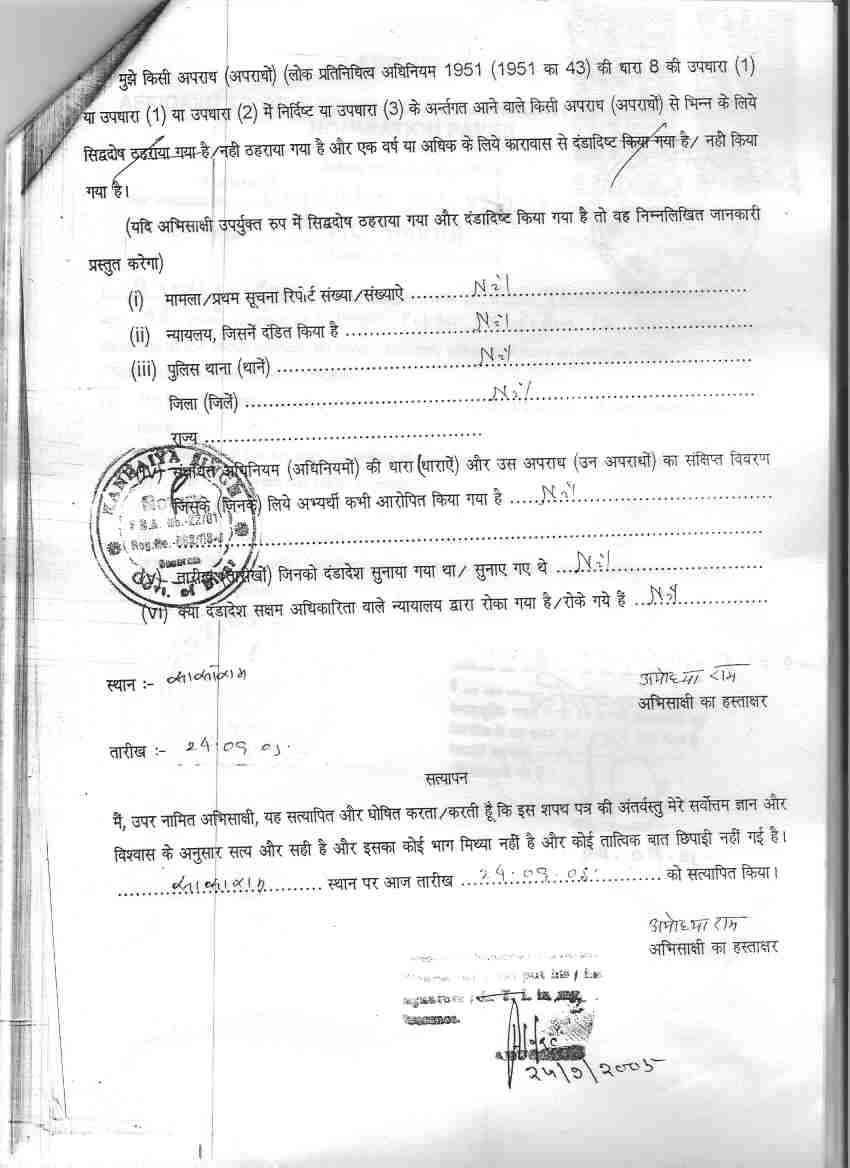 मुझे किसी अपराध (अपराधों) (लोक प्रतिनिधित्व अधिनियम 1951 (1951 का 43) की धारा 8 की उपधारा (1)
या उपधारा (1) या उपधारा (2) में निर्दिष्ट या उपधारा (3) के अर्न्तगत आने वाले किसी अपराध (अपराधों) से भिन्न के लिये
सिद्वदोष ठहराया गया है/नही ठहराया गया है और एक वर्ष या अधिक के लिये कारावास से दंडादिष्ट किया गया है/ नही किया
गया है।
(यदि अभिसाक्षी उपर्युक्त रुप में सिद्वदोष ठहराया गया और दंडादिष्ट किया गया है तो वह निम्नलिखित जानकारी
प्रस्तुत करेगा)
(i) मामला/प्रथम सूचना रिपोर्ट संख्या/संख्याऐ ........ Nil ........
(ii) न्यायलय, जिसनें दंडित किया है ........ Nil ........
(iii) पुलिस थाना (थानें) ........ Nil ........
जिला (जिलें) ........ Nil ........
राज्य ........
संबंधित अधिनियम (अधिनियमों) की धारा (धाराऐं) और उस अपराध (उन अपराधों) का संक्षिप्त विवरण
जिसके (जिनके) लिये अभ्यर्थी कभी आरोपित किया गया है ........ Nil ........
(V) तारीख (तारीखों) जिनको दंडादेश सुनाया गया था/ सुनाए गए थे ........ Nil ........
(VI) क्या दंडादेश सक्षम अधिकारिता वाले न्यायालय द्वारा रोका गया है/रोके गये हैं ........ Nil ........
KANHAIYA SINGH
स्थान :-
अयोध्या राम
अभिसाक्षी का हस्ताक्षर
तारीख :- 24.09.05.
सत्यापन
मैं, उपर नामित अभिसाक्षी, यह सत्यापित और घोषित करता/करती हूँ कि इस शपथ पत्र की अंतर्वस्तु मेरे सर्वोत्तम ज्ञान और
विश्वास के अनुसार सत्य और सही है और इसका कोई भाग मिथ्या नहीं है और कोई तात्विक बात छिपाई नहीं गई है।
........ स्थान पर आज तारीख ... 24.09.05. ... को सत्यापित किया।
अयोध्या राम
अभिसाक्षी का हस्ताक्षर
24/9/2005